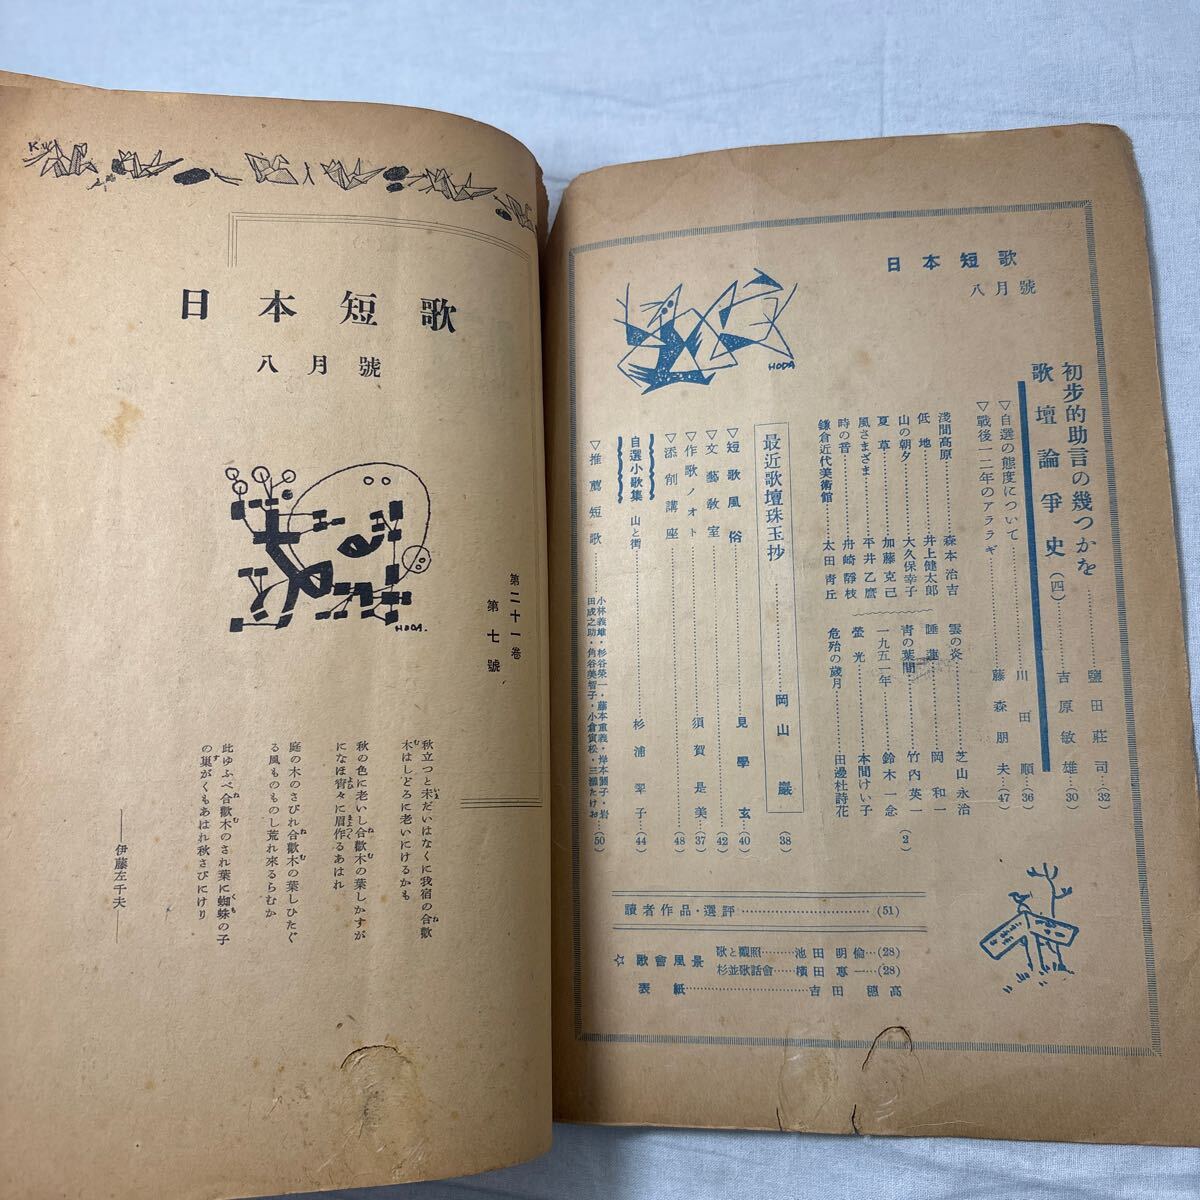 日本短歌
八月號
初步的助言の幾つかを……鹽田莊司(32)
歌壇論爭史(四)……吉原敏雄(30)
▽自選の態度について……川田順(36)
▽戰後一二年のアララギ……藤森朋夫(47)
淺間高原……森本治吉
低地……井上健太郎
山の朝夕……大久保幸子
夏草……加藤克己
風さまざま……平井乙麿
時の音……舟崎靜枝
鎌倉近代美術館……太田靑丘
雲の炎……芝山永治
睡蓮……岡和一
靑の葉間……竹內英一(2)
一九五一年……鈴木一念
螢光……本間けい子
危殆の歲月……田邊杜詩花
最近歌壇珠玉抄……岡山巖(38)
▽短歌風俗……見學玄(40)
▽文藝敎室……(42)
▽作歌ノオト……須賀是美(37)
▽添削講座……(48)
自選小歌集 山と街……杉浦翠子(44)
▽推薦短歌……小林義雄・杉谷榮一・藤本重義・岸本關子・岩
田成之助・角谷美智子・小倉寅松・三瀬たけお(50)
讀者作品・選評……(51)
☆歌會風景
歌と觀照……池田明倫…(28)
杉並歌話會……橫田專一…(28)
表紙……吉田穗高
HODA
K.W
日本短歌
八月號
第二十一卷
第七號
HODA.
秋立つと未だいはなくに我宿の合歡
木はしどろに老いにけるかも
秋の色に老いし合歡木の葉しかすが
になほ宵々に眉作るあはれ
庭の木のさびれ合歡木の葉しひたぐ
る風ものものし荒れ來るらむか
此ゆふべ合歡木のされ葉に蜘蛛の子
の巢がくもあはれ秋さびにけり
――伊藤左千夫――